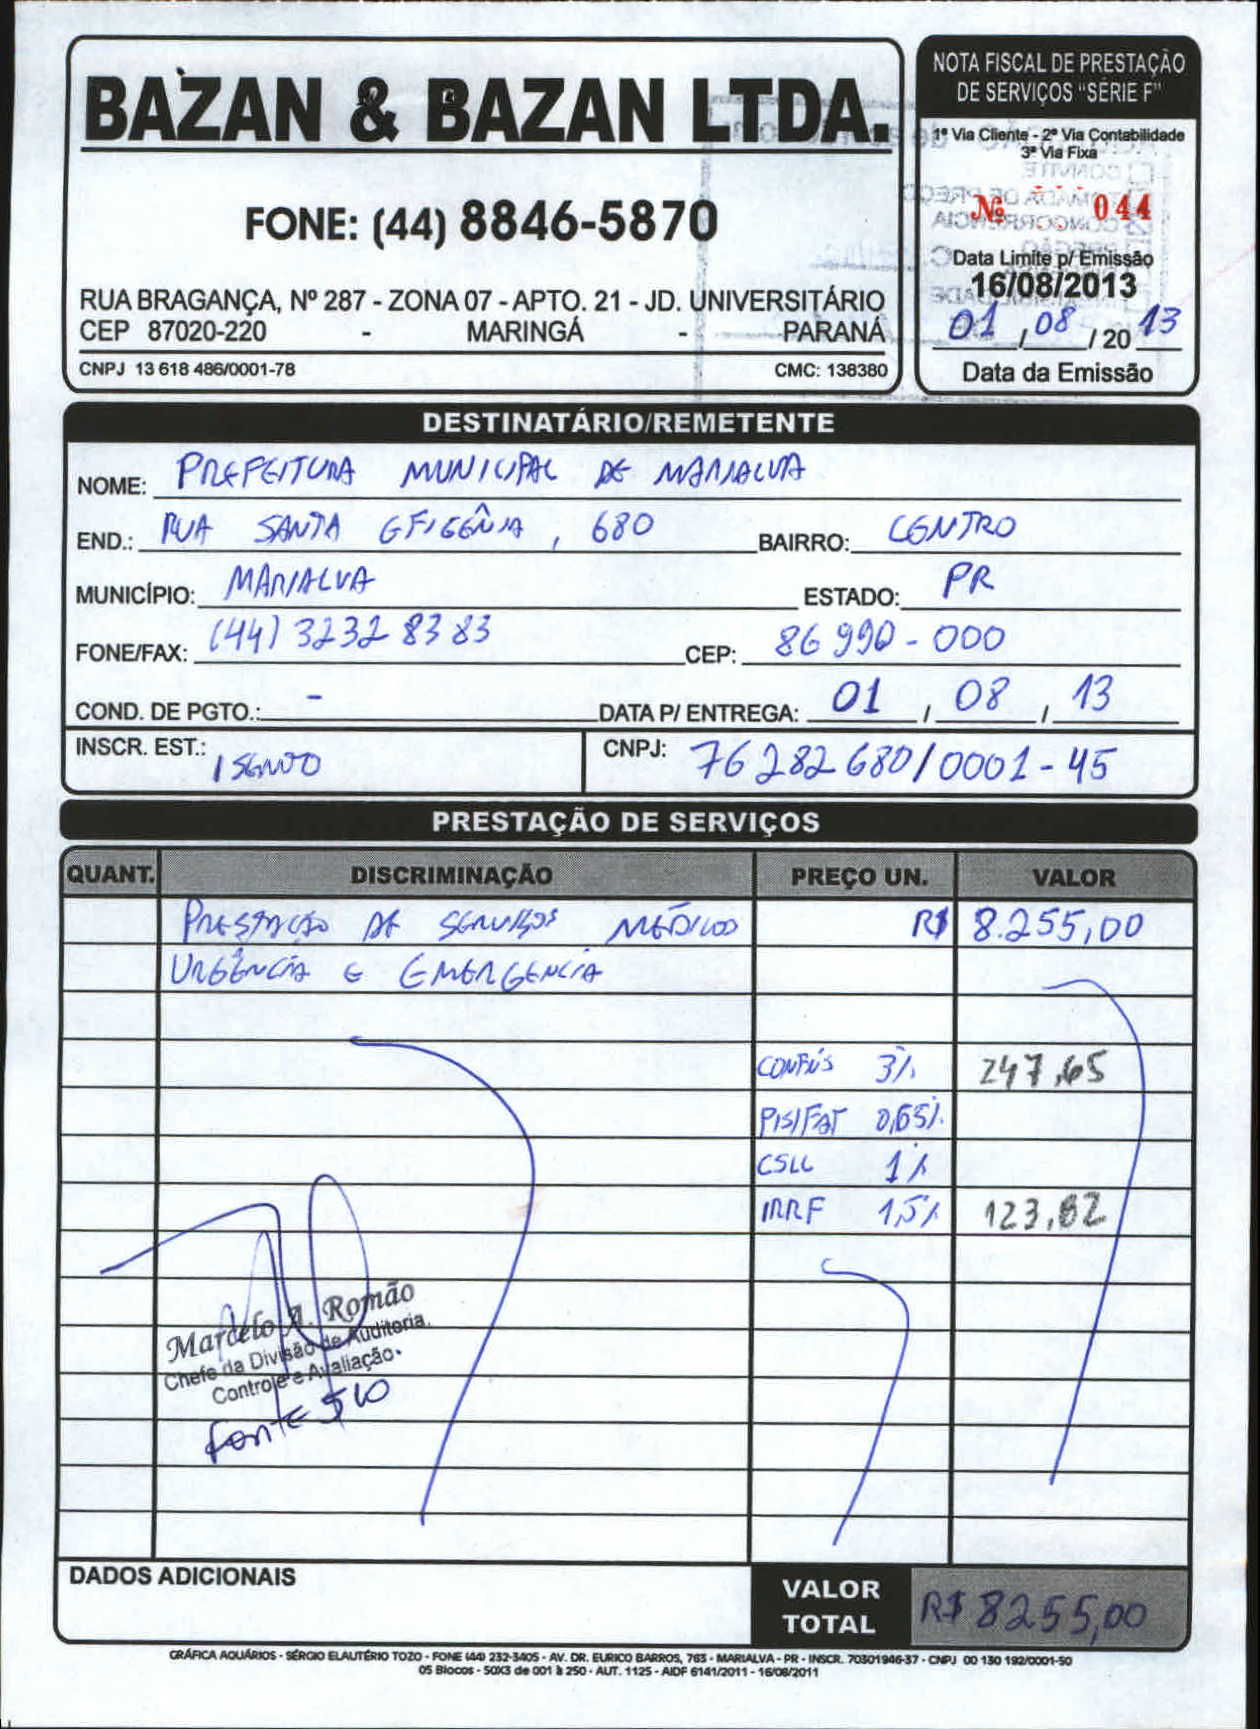 BAZAN & BAZAN LTDA.
FONE: (44) 8846-5870
RUA BRAGANÇA, Nº 287 - ZONA 07 - APTO. 21 - JD. UNIVERSITÁRIO
CEP 87020-220 - MARINGÁ - PARANÁ
CNPJ 13 618 486/0001-78 CMC: 138380
NOTA FISCAL DE PRESTAÇÃO
DE SERVIÇOS "SÉRIE F"
1ª Via Cliente - 2ª Via Contabilidade
3ª Via Fixa
Nº 044
Data Limite p/ Emissão
16/08/2013
01 / 08 / 20 13
Data da Emissão
DESTINATÁRIO/REMETENTE
NOME: PREFEITURA MUNICIPAL DE MARIALVA
END.: RUA SANTA EFIGÊNIA, 680 BAIRRO: CENTRO
MUNICÍPIO: MARIALVA ESTADO: PR
FONE/FAX: (44) 3232 8383 CEP: 86990-000
COND. DE PGTO.: - DATA P/ ENTREGA: 01 / 08 / 13
INSCR. EST.: ISENTO CNPJ: 76282680/0001-45
PRESTAÇÃO DE SERVIÇOS
QUANT. DISCRIMINAÇÃO PREÇO UN. VALOR
PRESTAÇÃO DE SERVIÇOS MÉDICO R$ 8.255,00
URGÊNCIA E EMERGENCIA
CONFINS 3% 247,65
PIS/FAT 0,65%
CSLL 1%
IRRF 1,5% 123,82
Marcelo A. Romão
Chefe da Divisão de Auditoria,
Controle e Avaliação.
fonte 510
DADOS ADICIONAIS
VALOR TOTAL R$ 8255,00
GRÁFICA AQUÁRIOS - SÉRGIO ELAUTÉRIO TOZO - FONE (44) 232-3405 - AV. DR. EURICO BARROS, 763 - MARIALVA - PR - INSCR. 70301946-37 - CNPJ 00 130 192/0001-50
05 Blocos - 50X3 de 001 à 250 - AUT. 1125 - AIDF 6141/2011 - 16/08/2011